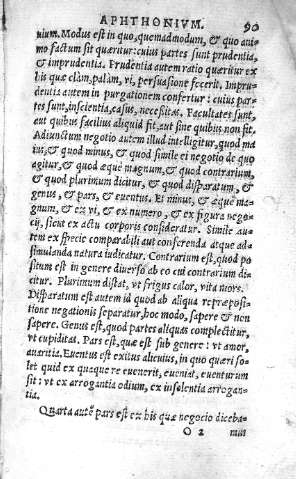 APHTHONIVM. 90
nium. Modus est in quo, quemadmodum, & quo ani-
mo factum sit quæritur: cuius partes sunt prudentia,
& imprudentia. Prudentiæ autem ratio quæritur ex
his quæ clàm, palàm, vi, persuasione fecerit. Impru-
dentia autem in purgationem confertur: cuius par-
tes sunt, inscientia, casus, necessitas. Facultates sunt,
aut quibus facilius aliquid fit, aut sine quibus non fit.
Adiunctum negotio autem illud intelligitur, quod ma
ius, & quod minus, & quod simile ei negotio de quo
agitur, & quod æquè magnum, & quod contrarium,
& quod plurimum dicitur, & quod disparatum, &
genus, & pars, & euentus. Et minus, & æquè ma-
gnum, & ex vi, & ex numero, & ex figura nego-
cij, sicut ex actu corporis consideratur. Simile au-
tem ex specie comparabili aut conferenda atque ad-
simulanda natura iudicatur. Contrarium est, quod po
situm est in genere diuerso ab eo cui contrarium di-
citur. Plurimum distat, vt frigus calor, vita mors.
Disparatum est autem id quod ab aliqua repræposi-
tione negationis separatur, hoc modo, sapere & non
sapere. Genus est, quod partes aliquas complectitur,
vt cupiditas. Pars est, quæ est sub genere: vt amor,
auaritia. Euentus est exitus alicuius, in quo quæri so-
let quid ex quaque re euenerit, eueniat, euenturum
sit: vt ex arrogantia odium, ex insolentia arrogan-
tia.
Quarta autē pars est ex his quæ negocio diceba-
O 2 mus